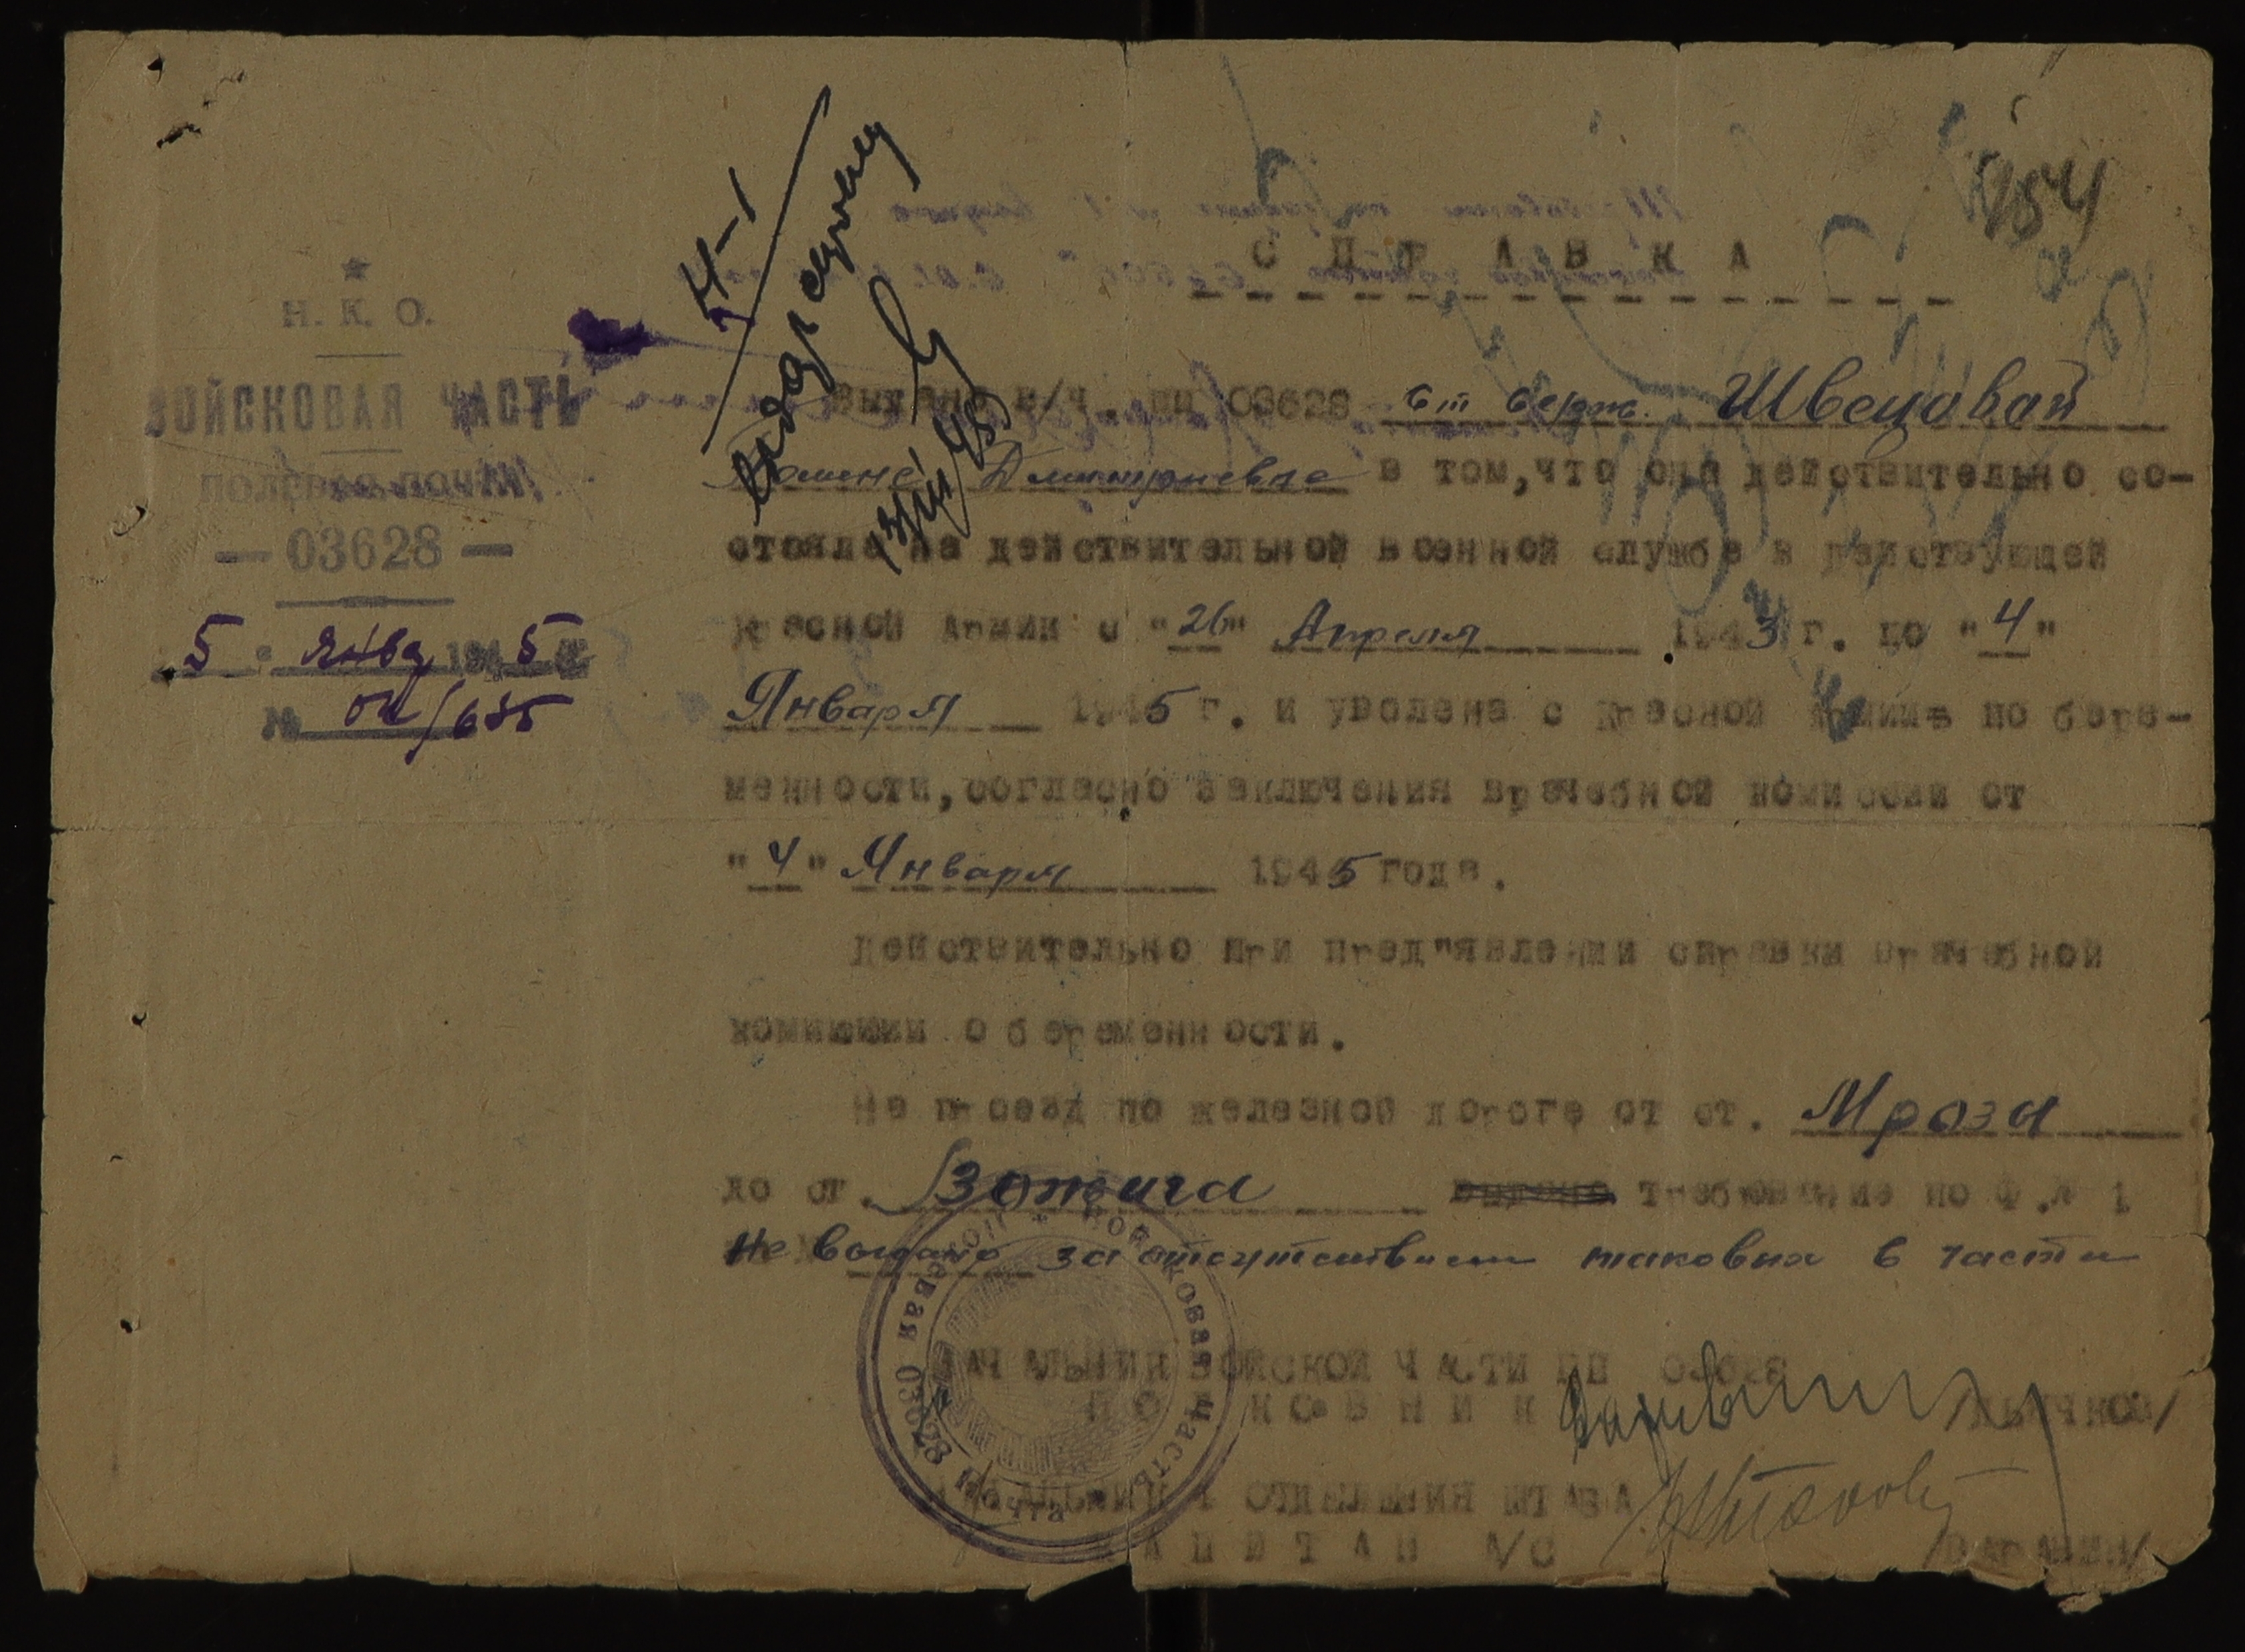 154
Н. К. О.
ВОЙСКОВАЯ ЧАСТЬ
полевая почта
— 03628 —
5 " янва 1945 г.
№ 04/635
Н-1
С П Р А В К А
Выдана в/ч. пп 03628 ст серж. Швецовой
Дмитриевне в том, что она действительно со-
стояла на действительной военной службе в действующей
Красной Армии с "26" Апреля 1943 г. по "4"
Января 1945 г. и уволена с Красной Армии по бере-
менности, согласно заключения врачебной комиссии от
"4" Января 1945 года.
Действительно при пред"явлении справки врачебной
комиссии о беременности.
На проезд по железной дороге от ст. Мрозы
до ст. требование по Ф.№ 1
не выдано за отсутствием таковых в части
НАЧАЛЬНИК ВОЙСКОЙ ЧАСТИ ПП 03628
П О Л К О В Н И К
НАЧАЛЬНИК 4 ОТДЕЛЕНИЯ ШТАБА
К А П И Т А Н А/С
Войсковая часть * Полевая почта 03628